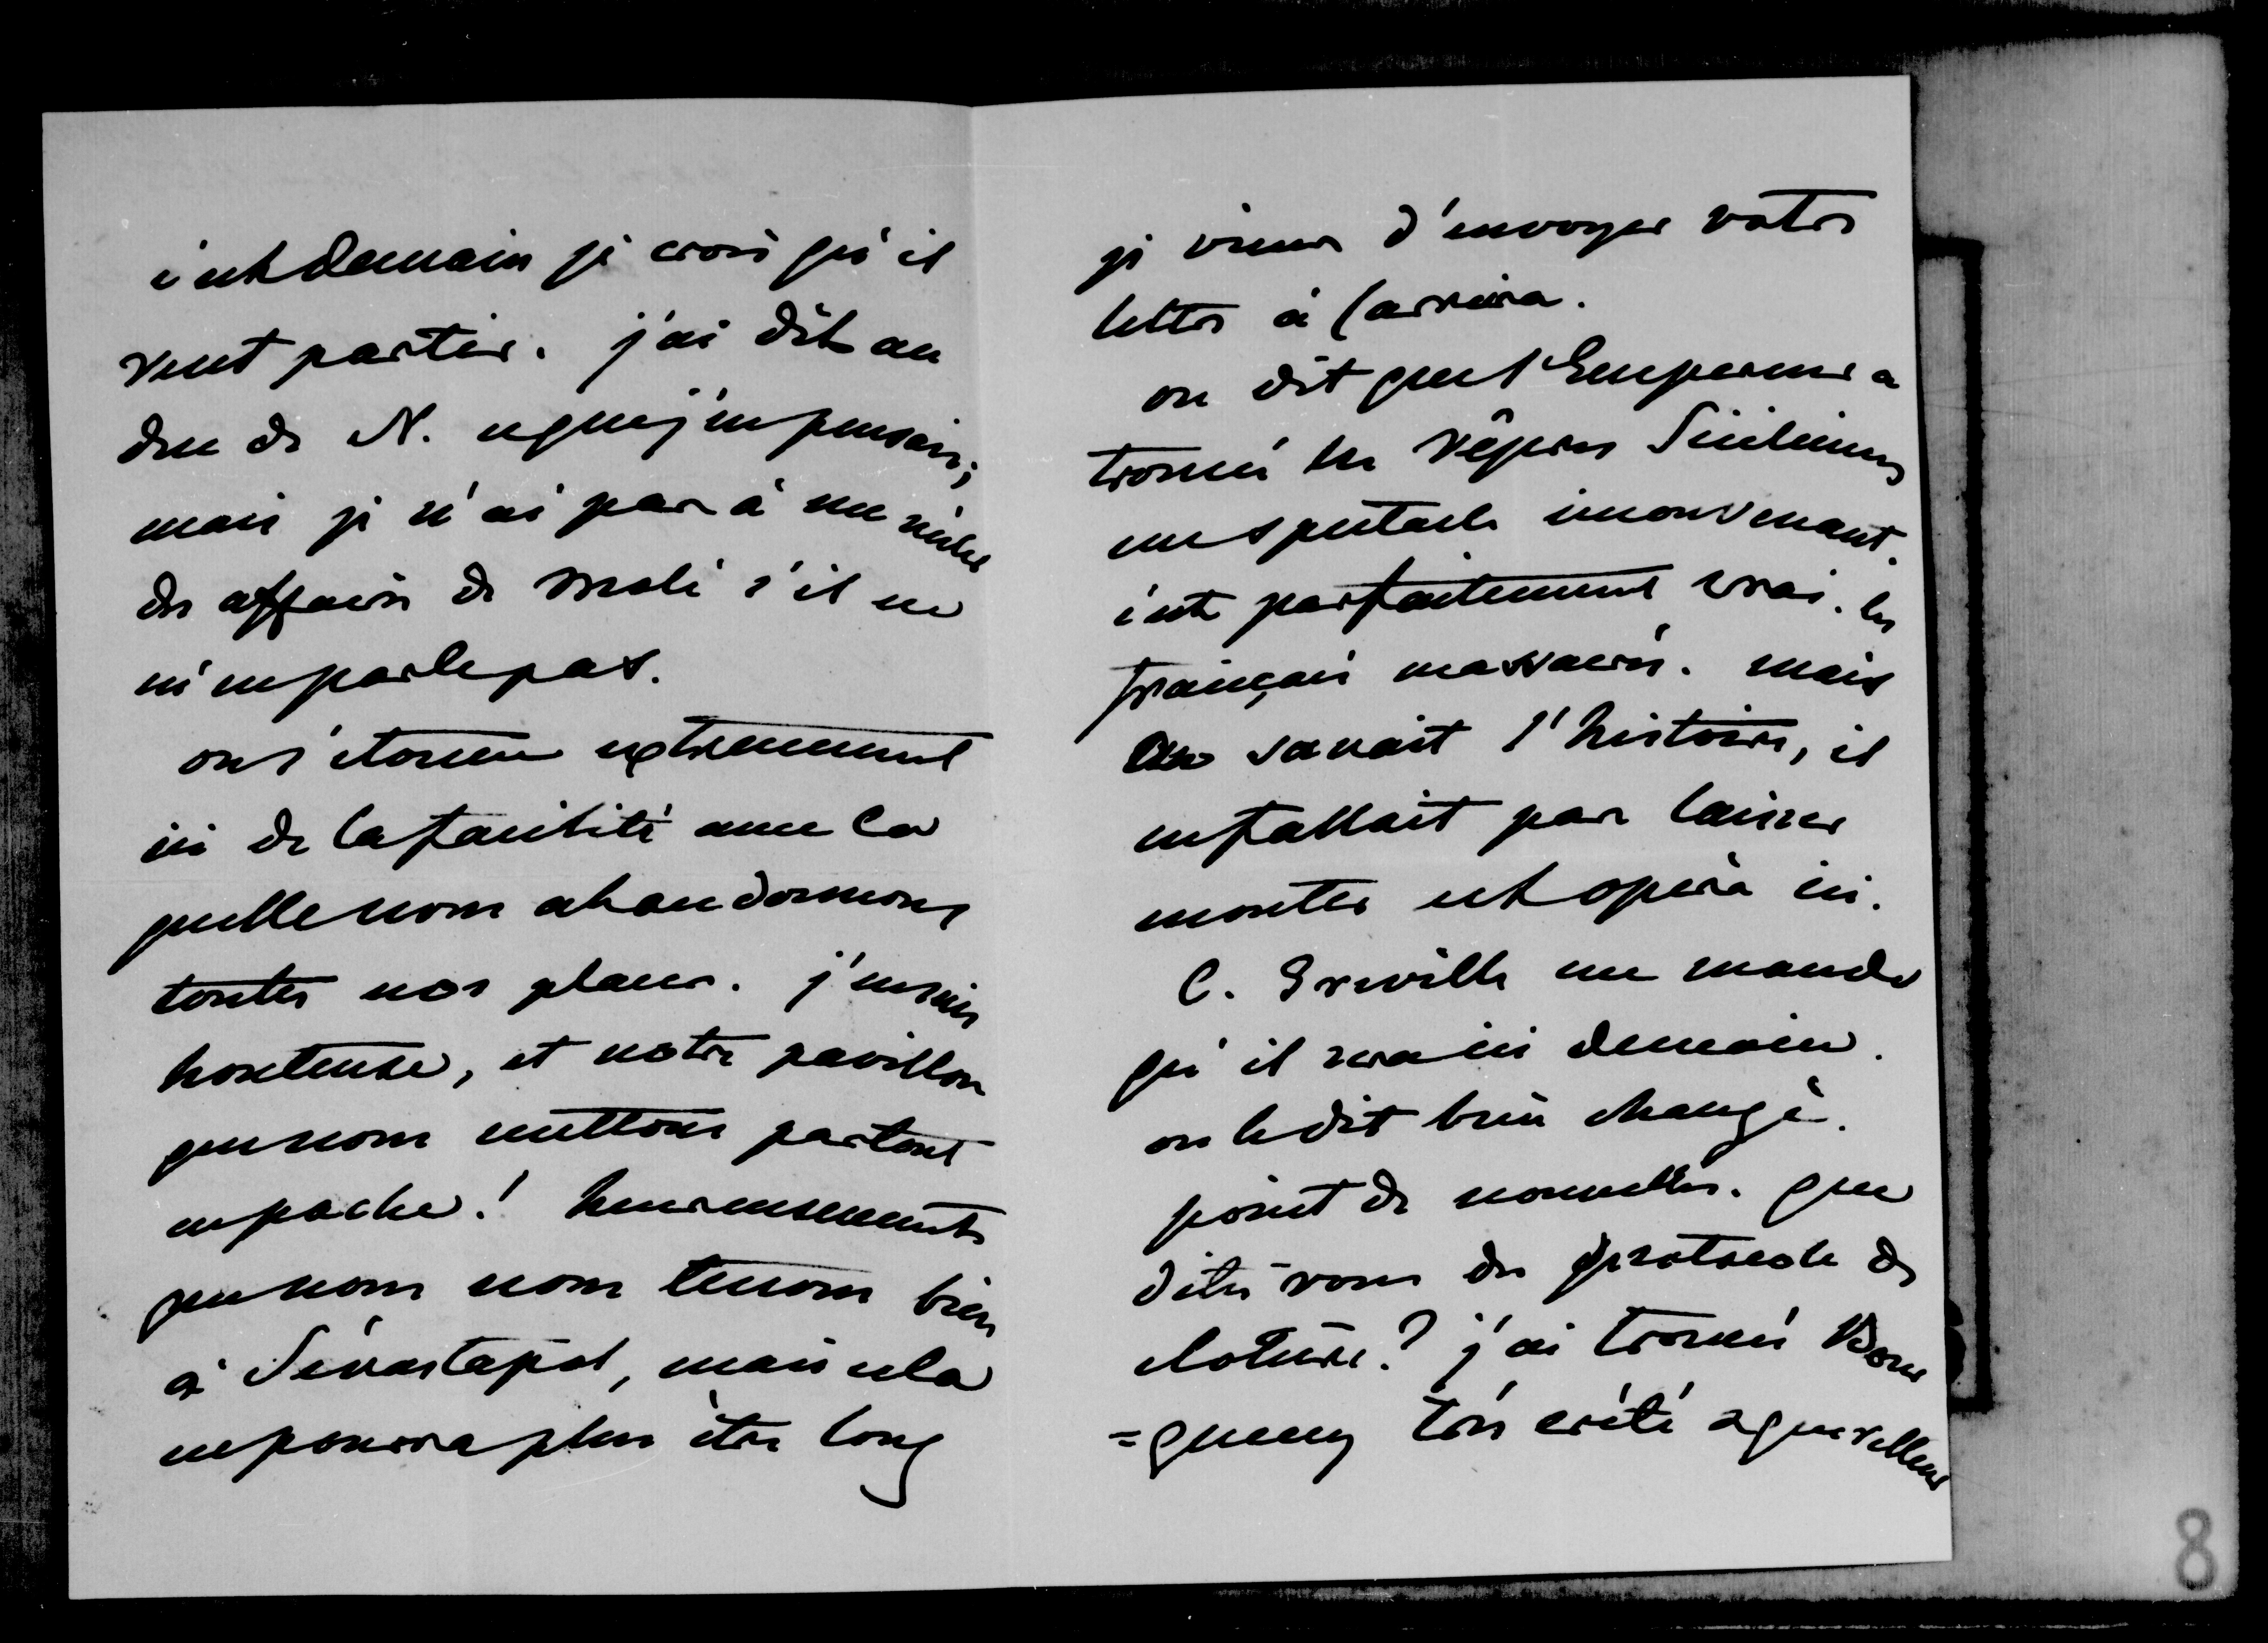 c'est demain je crois qu'il
veut partir. j'ai dit au
duc de N. ce que j'en pensais;
mais je n'ai pas à me mêler
des affaires de Molé s'il ne
m'en parle pas.
on s'étonne extremement
ici de la facilité avec la
quelle nous abandonnons
toutes nos places. j'en suis
honteuse, et notre pavillon
que nous mettons partout
en poche! heureusement
que nous nous tenons bien
à Sévastapol, mais cela
ne pourra plus être long
je viens d'envoyer votre
lettre à
on dit que l'Empereur a
trouvé les Vêpres Siciliennes
un spectacle inconvenant.
c'est parfaitement vrai. les
français massacrés. mais
on savait l'histoire, il
ne fallait pas laisser
monter cet opéra ici.
C. Greville me mande
qu'il sera ici demain.
on le dit bien changé.
point de nouvelles. que
dites vous du protocole de
cloture? j'ai trouvé Bour
=queney très